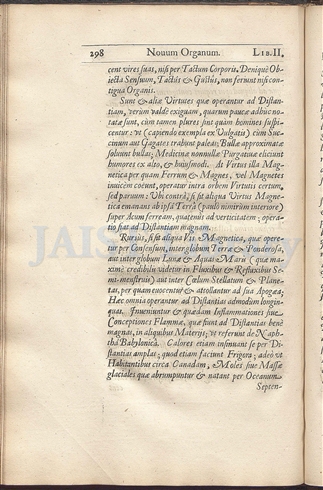 298 Novum Organum. LIB. II.
cent vires suas, nisi per Tactum Corporis. Denique Ob-
iecta Sensuum, Tactûs & Gustûs, non feriunt nisi con-
tigua Organis.
Sunt & aliæ Virtutes quæ operantur ad Distan-
tiam, verùm valdè exiguam, quarum paucæ adhuc no-
tatæ sunt, cùm tamen plures sint quàm homines suspi-
centur: vt (capiendo exempla ex Vulgatis) cùm Suc-
cinum aut Gagates trahunt paleas; Bullæ approximatæ
soluunt bullas; Medicinæ nonnullæ Purgatiuæ eliciunt
humores ex alto, & huiusmodi. At Virtus illa Magne-
tica per quam Ferrum & Magnes, vel Magnetes
inuicem coëunt, operatur intra orbem Virtutis certum,
sed paruum: Vbi contrà, si sit aliqua Virtus Magne-
tica emanans ab ipsâ Terrâ (paulò nimirùm interiore)
super Acum ferream, quatenus ad verticitatem; opera-
tio fiat ad Distantiam magnam.
Rursus, si sit aliqua Vis Magnetica, quæ opere-
tur per Consensum, inter globum Terræ & Ponderosa,
aut inter globum Lunæ & Aquas Maris (quæ ma-
ximè credibilis videtur in Fluxibus & Refluxibus Se-
mi-menstruis) aut inter Cœlum Stellatum & Plane-
tas, per quam euocentur & attollantur ad sua Apogæa;
Hæc omnia operantur ad Distantias admodùm longin-
quas. Inueniuntur & quædam Inflammationes siue
Conceptiones Flammæ, quæ fiunt ad Distantias benè
magnas, in aliquibus Materijs; vt referunt de Naph-
tha Babylonicâ. Calores etiam insinuant se per Di-
stantias amplas; quod etiam faciunt Frigora; adeò vt
Habitantibus circa Canadam, Moles siue Massæ
glaciales quæ abrumpuntur & natant per Oceanum
Septen-
JAIST